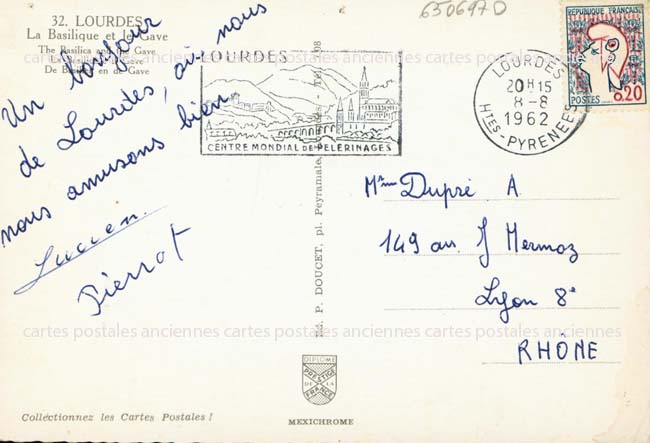 32. LOURDES
La Basilique et le Gave
The Basilica and the Gave
De Basiliek en de Gave
Un bonjour
de Lourdes, où nous
nous amusons bien
Lucien.
Pierrot
650697D
LOURDES
CENTRE MONDIAL DE PELERINAGES
LOURDES
20H15
8-8
1962
HTES-PYRENEES
REPUBLIQUE FRANÇAISE
POSTES
0,20
Mme Dupré A.
149 av. J Mermoz
Lyon 8e
RHÔNE
Ed. P. DOUCET, pl. Peyramale,
cartes postales anciennes cartes postales anciennes cartes postales anciennes
DIPLOME
PRESTIGE
DE LA
FRANCE
Collectionnez les Cartes Postales !
MEXICHROME